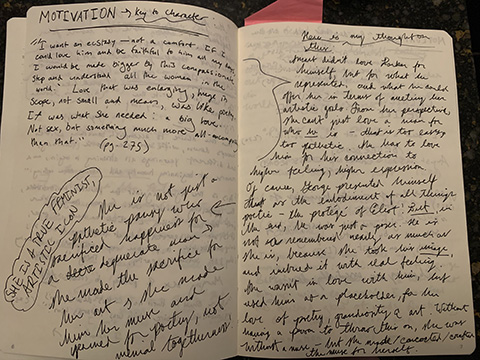 MOTIVATION → Key to Character
"I want an ecstasy – not a comfort. If I
could love him and be faithful to him all my days
I would be made bigger by this compassionate
step and understand all the women in the
world. Love that was enlarging, huge in
scope, not small and mean, was like poetry.
It was what she needed: a big love.
Not sex, but something much more all-encompassing
than that."
(pg. 275)
SHE IS A TRUE FEMINIST
ARTISTIC ICON
She is not just a
pathetic pansy who
sacrificed happiness for
a desperate man →
She made the sacrifice for
her art & she made
him her muse and
yearned for poetry, not
animal togetherness!
Here is my thought on
this:
didn't love for
himself, but for what he
represented, and what he could
offer her in terms of meeting her
artistic goals. From her perspective,
she can't just love a man for
who he is – that is too easy
too pathetic. She has to love
him for his connection to
higher feeling, higher expression.
Of course, George presented himself
that as the embodiment of all things
poetic – the protegé of Eliot. But, in
the end, he was just a poser. He is
not remembered nearly as much as
she is, because she took his image
and imbued it with real feeling.
She wasn't in love with him, but
used him as a placeholder for her
love of poetry, grandiosity & art. Without
having a person to throw this on, she was
without a muse – but she made / concocted /
the muse for herself.